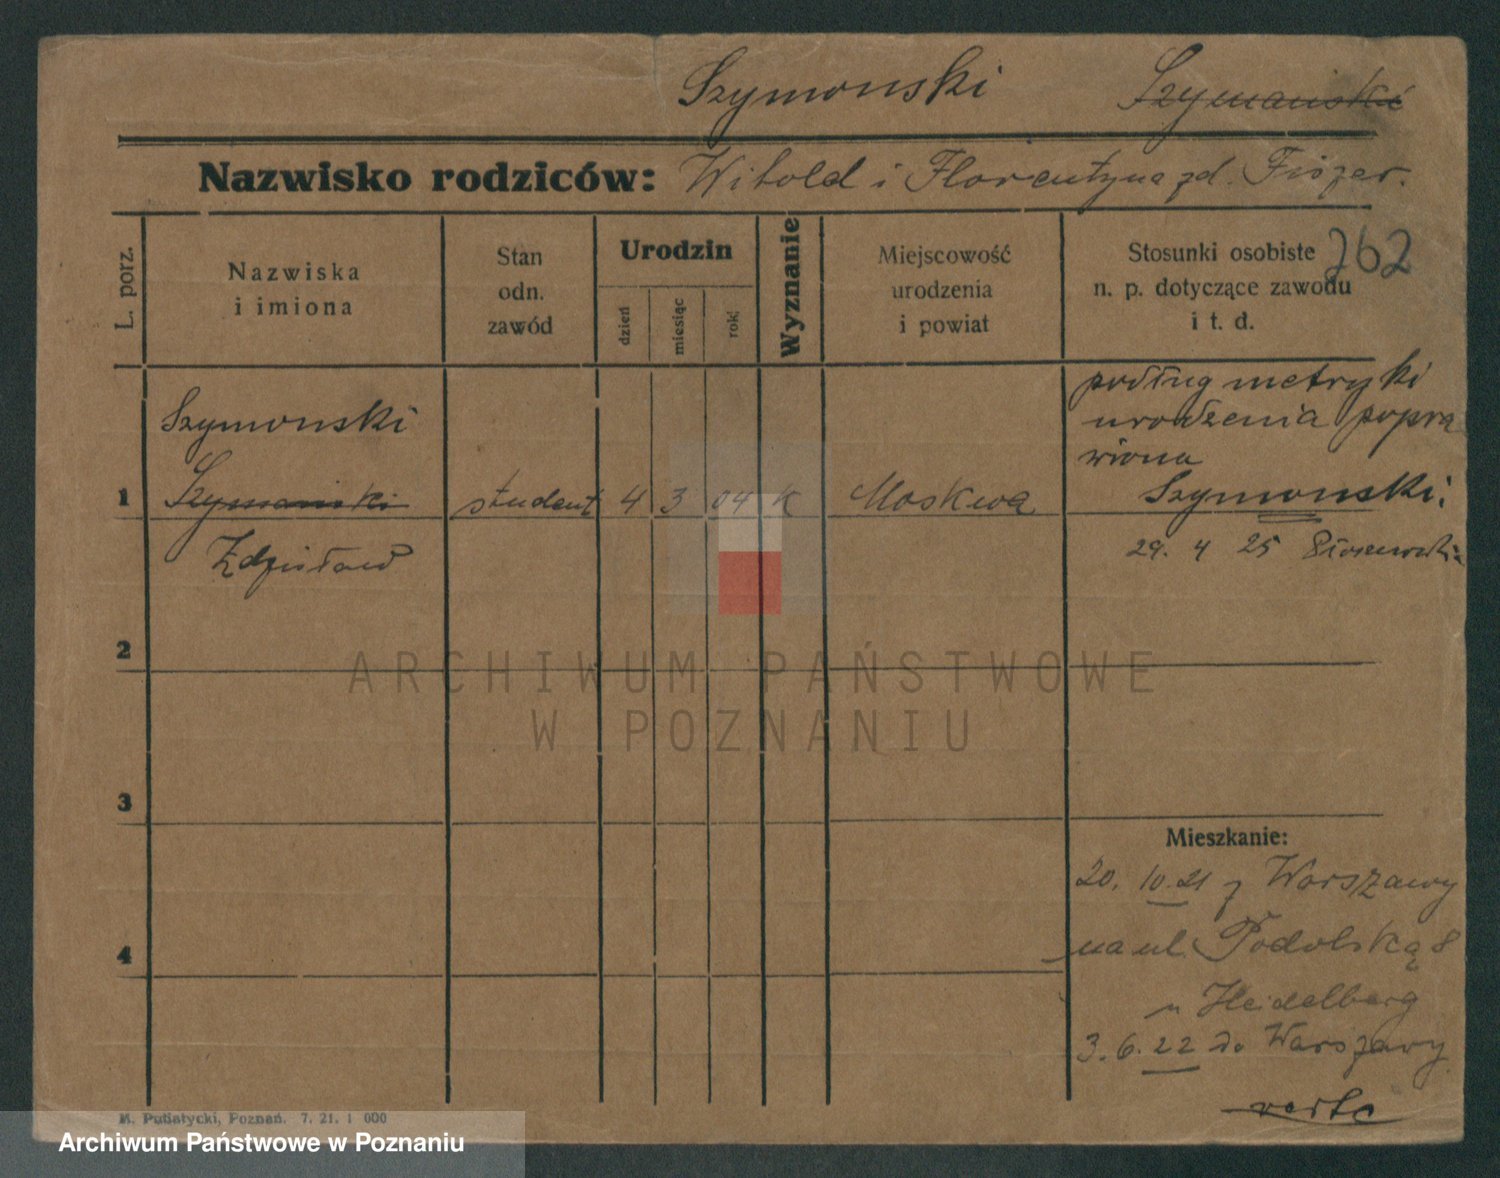 Szymonski Szymański
Nazwisko rodziców: Witold i Florentyna zd. Fiszer.
L. porz.
Nazwiska
i imiona
Stan
odn.
zawód
Urodzin
dzień
miesiąc
rok
Wyznanie
Miejscowość
urodzenia
i powiat
Stosunki osobiste
n. p. dotyczące zawodu
i t. d.
262
podług metryki
urodzenia popra
wiona
Szymonski.
29. 4 25
Szymonski
1 Szymański student 4 3 04 K Moskwa
Zdzisław
2
3
4
Mieszkanie:
20. 10. 21 z Warszawy
na ul. Podolską 8
u Heidelberg
3. 6. 22 do Warszawy
verte
M. Putiatycki, Poznań. 7. 21. 1 000
ARCHIWUM PAŃSTWOWE
W POZNANIU
Archiwum Państwowe w Poznaniu